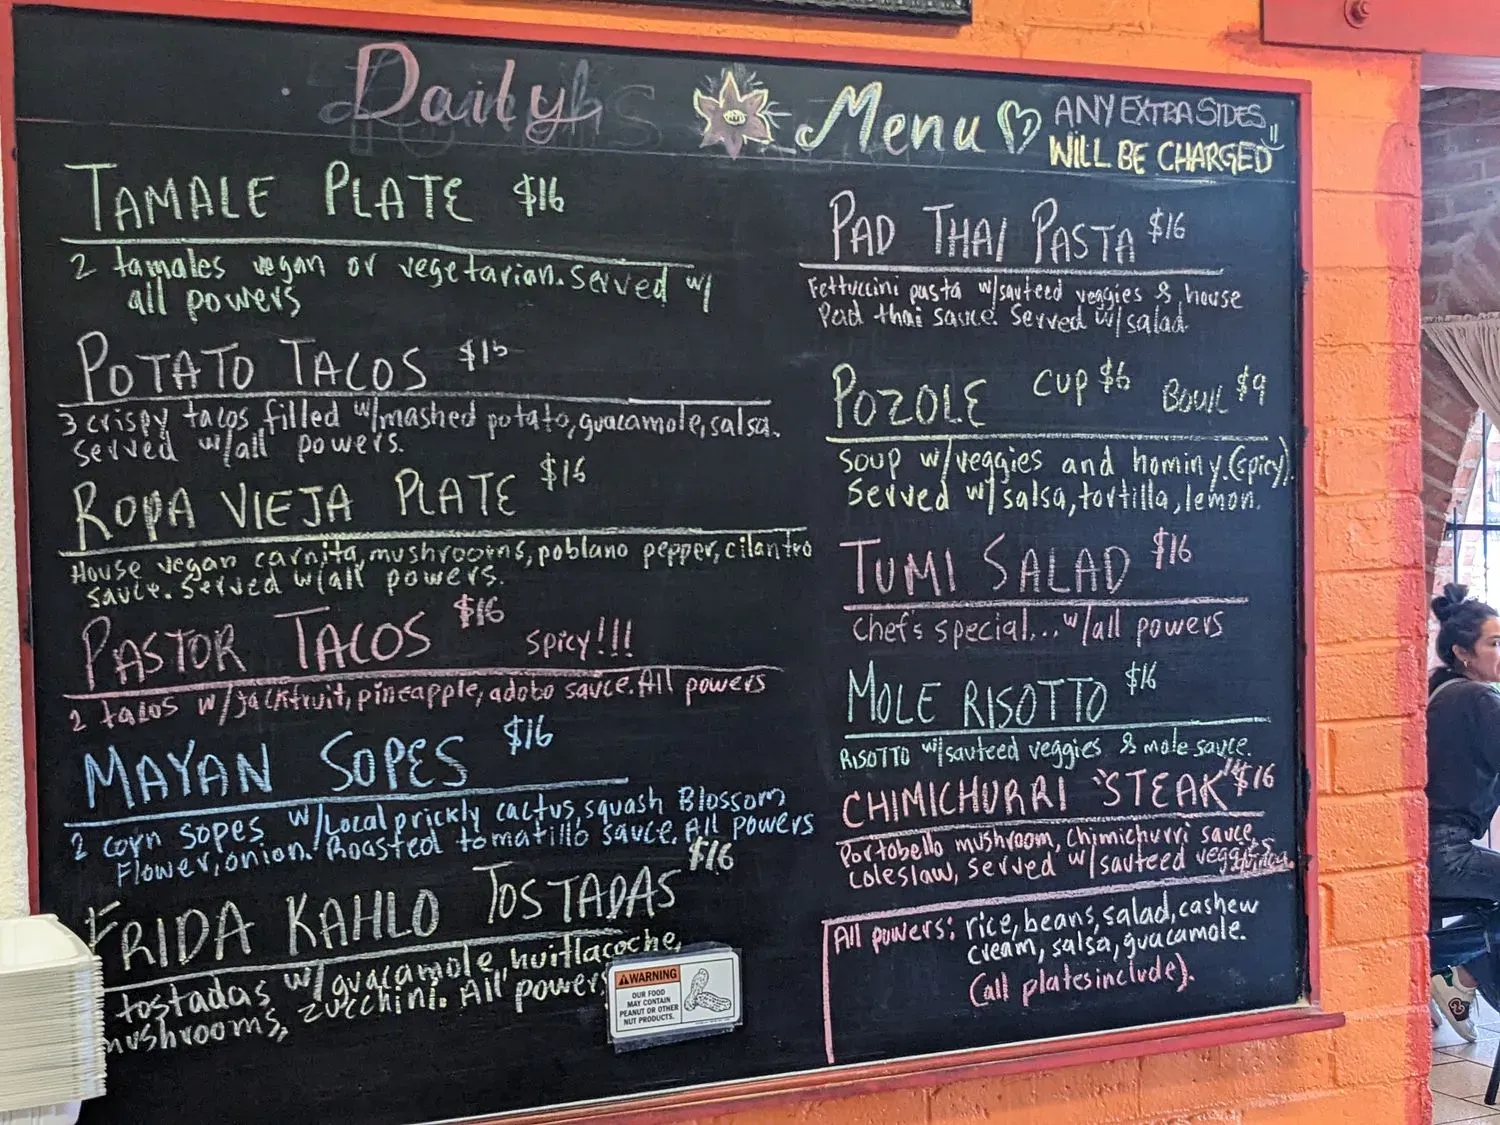 Daily Menu
ANY EXTRA SIDES
WILL BE CHARGED
TAMALE PLATE $16
2 tamales vegan or vegetarian. Served w/
all powers
POTATO TACOS $16
3 crispy tacos filled w/mashed potato, guacamole, salsa.
Served w/all powers.
ROPA VIEJA PLATE $16
House vegan carnita, mushrooms, poblano pepper, cilantro
sauce. Served w/all powers.
PASTOR TACOS $16 Spicy!!!
2 tacos w/jackfruit, pineapple, adobo sauce. All powers
MAYAN SOPES $16
2 corn sopes w/Local prickly cactus, squash Blossom
Flower, onion. Roasted tomatillo sauce. All powers
FRIDA KAHLO TOSTADAS $16
tostadas w/guacamole, huitlacoche,
mushrooms, zucchini. All powers
WARNING
OUR FOOD
MAY CONTAIN
PEANUT OR OTHER
NUT PRODUCTS.
PAD THAI PASTA $16
Fettuccini pasta w/sauteed veggies & house
Pad thai sauce. Served w/salad.
POZOLE CUP $6 BOWL $9
Soup w/veggies and hominy. (spicy).
Served w/salsa, tortilla, lemon.
TUMI SALAD $16
Chef's special... w/all powers
MOLE RISOTTO $16
RISOTTO w/sauteed veggies & mole sauce.
CHIMICHURRI "STEAK" $16
Portobello mushroom, chimichurri sauce
coleslaw, served w/sauteed veggies
quinoa.
All powers: rice, beans, salad, cashew
cream, salsa, guacamole.
(all plates include).